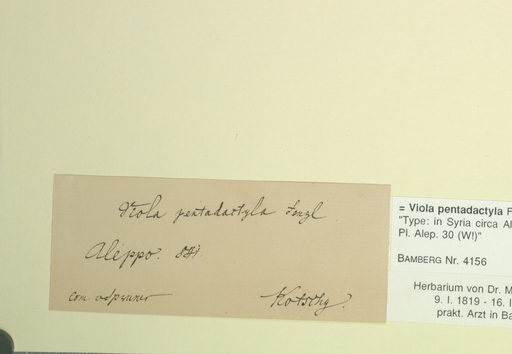 Viola pentadactyla Fenzl
Aleppo. 841.
com
Kotschy.
= Viola pentadactyla F
"Type: in Syria circa Al
Pl. Alep. 30 (W!)"
BAMBERG Nr. 4156
Herbarium von Dr. M
9. I. 1819 - 16. I
prakt. Arzt in Ba